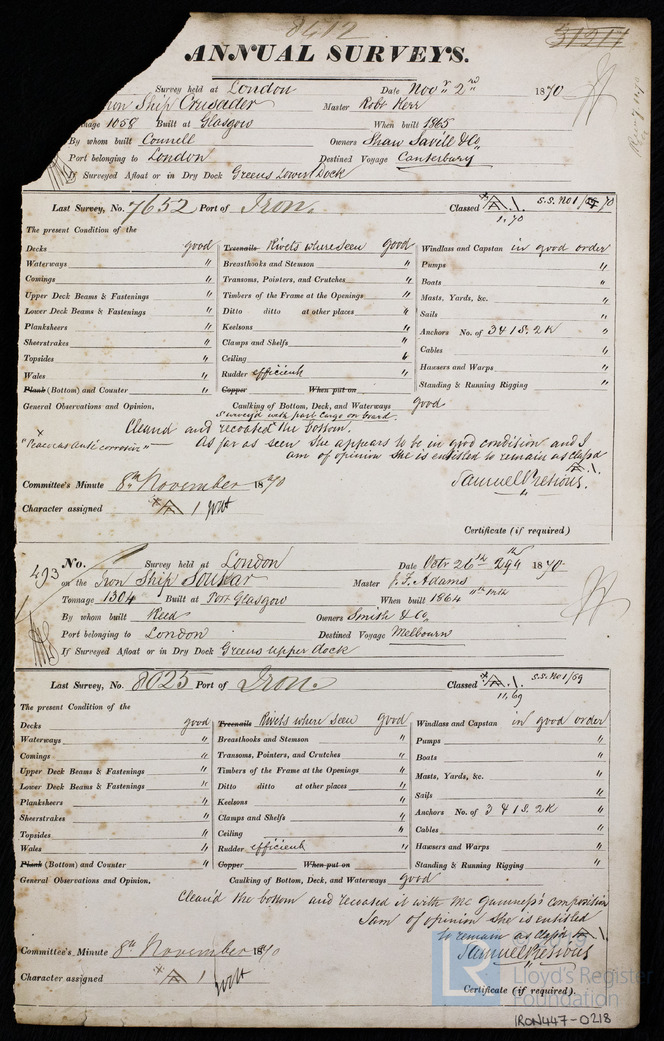 8412
31211
ANNUAL SURVEYS.
Survey held at London Date Novr 2nd 1870
Iron Ship Crusader Master Robt Kerr
Tonnage 1058 Built at Glasgow When built 1865
By whom built Connell Owners Shaw Savill & Co.
Port belonging to London Destined Voyage Canterbury
If Surveyed Afloat or in Dry Dock Greens Lower Dock
Last Survey, No. 7652 Port of Iron. Classed A 1. S.S. No 1/ 70
1,70
The present Condition of the
Decks good Treenails Rivets where seen good Windlass and Capstan in good order
Waterways " Breasthooks and Stemson " Pumps "
Comings " Transoms, Pointers, and Crutches " Boats "
Upper Deck Beams & Fastenings " Timbers of the Frame at the Openings " Masts, Yards, &c. "
Lower Deck Beams & Fastenings " Ditto ditto at other places " Sails "
Planksheers " Keelsons " Anchors No. of 3 & 1 S. 2 K "
Sheerstrakes " Clamps and Shelfs " Cables "
Topsides " Ceiling " Hawsers and Warps "
Wales " Rudder efficient " Standing & Running Rigging "
Plank (Bottom) and Counter " Copper When put on
General Observations and Opinion. Caulking of Bottom, Deck, and Waterways good
Survey'd with part Cargo on board
Cleand and recoated the bottom.
"Peacocks Anti corrosion" As far as seen she appears to be in good condition and I
am of opinion she is entitled to remain as class'd
A 1.
Committee's Minute 8th November 1870 Samuel Pretious.
Character assigned A 1
Certificate (if required)
493 No. Survey held at London Date Octr 26th 29th 1870
on the Iron Ship Soukar Master J. T. Adams
Tonnage 1304 Built at Port Glasgow When built 1864 11th mth
By whom built Reid Owners Smith & Co.
Port belonging to London Destined Voyage Melbourn
If Surveyed Afloat or in Dry Dock Greens upper dock
Last Survey, No. 8025 Port of Iron. Classed A 1. S.S. No 1/69
11,69
The present Condition of the
Decks good Treenails Rivets where seen good Windlass and Capstan in good order
Waterways " Breasthooks and Stemson " Pumps "
Comings " Transoms, Pointers, and Crutches " Boats "
Upper Deck Beams & Fastenings " Timbers of the Frame at the Openings " Masts, Yards, &c. "
Lower Deck Beams & Fastenings " Ditto ditto at other places " Sails "
Planksheers " Keelsons " Anchors No. of 3 & 1 S. 2 K "
Sheerstrakes " Clamps and Shelfs " Cables "
Topsides " Ceiling " Hawsers and Warps "
Wales " Rudder efficient " Standing & Running Rigging "
Plank (Bottom) and Counter " Copper When put on
General Observations and Opinion. Caulking of Bottom, Deck, and Waterways good
Clean'd the bottom and recoated it with composition
I am of opinion she is entitled
to remain as class'd A 1.
Committee's Minute 8th November 1870 Samuel Pretious
Character assigned A 1
Certificate (if required).
© 2019
LR
Lloyd's Register
Foundation
IRON447-0218